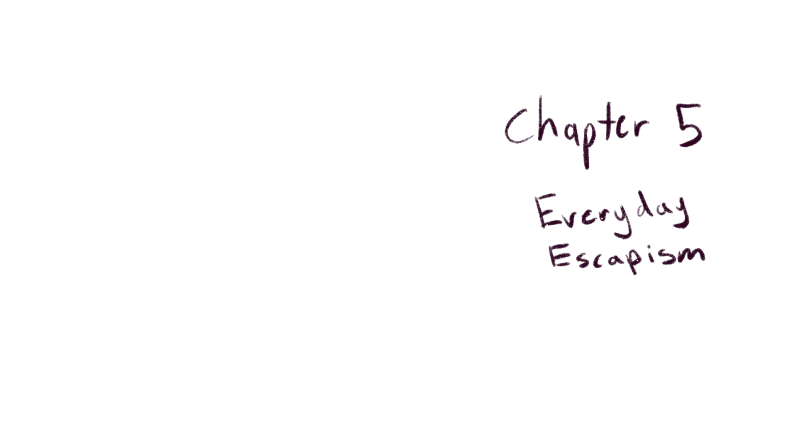 Chapter 5
Everyday
Escapism